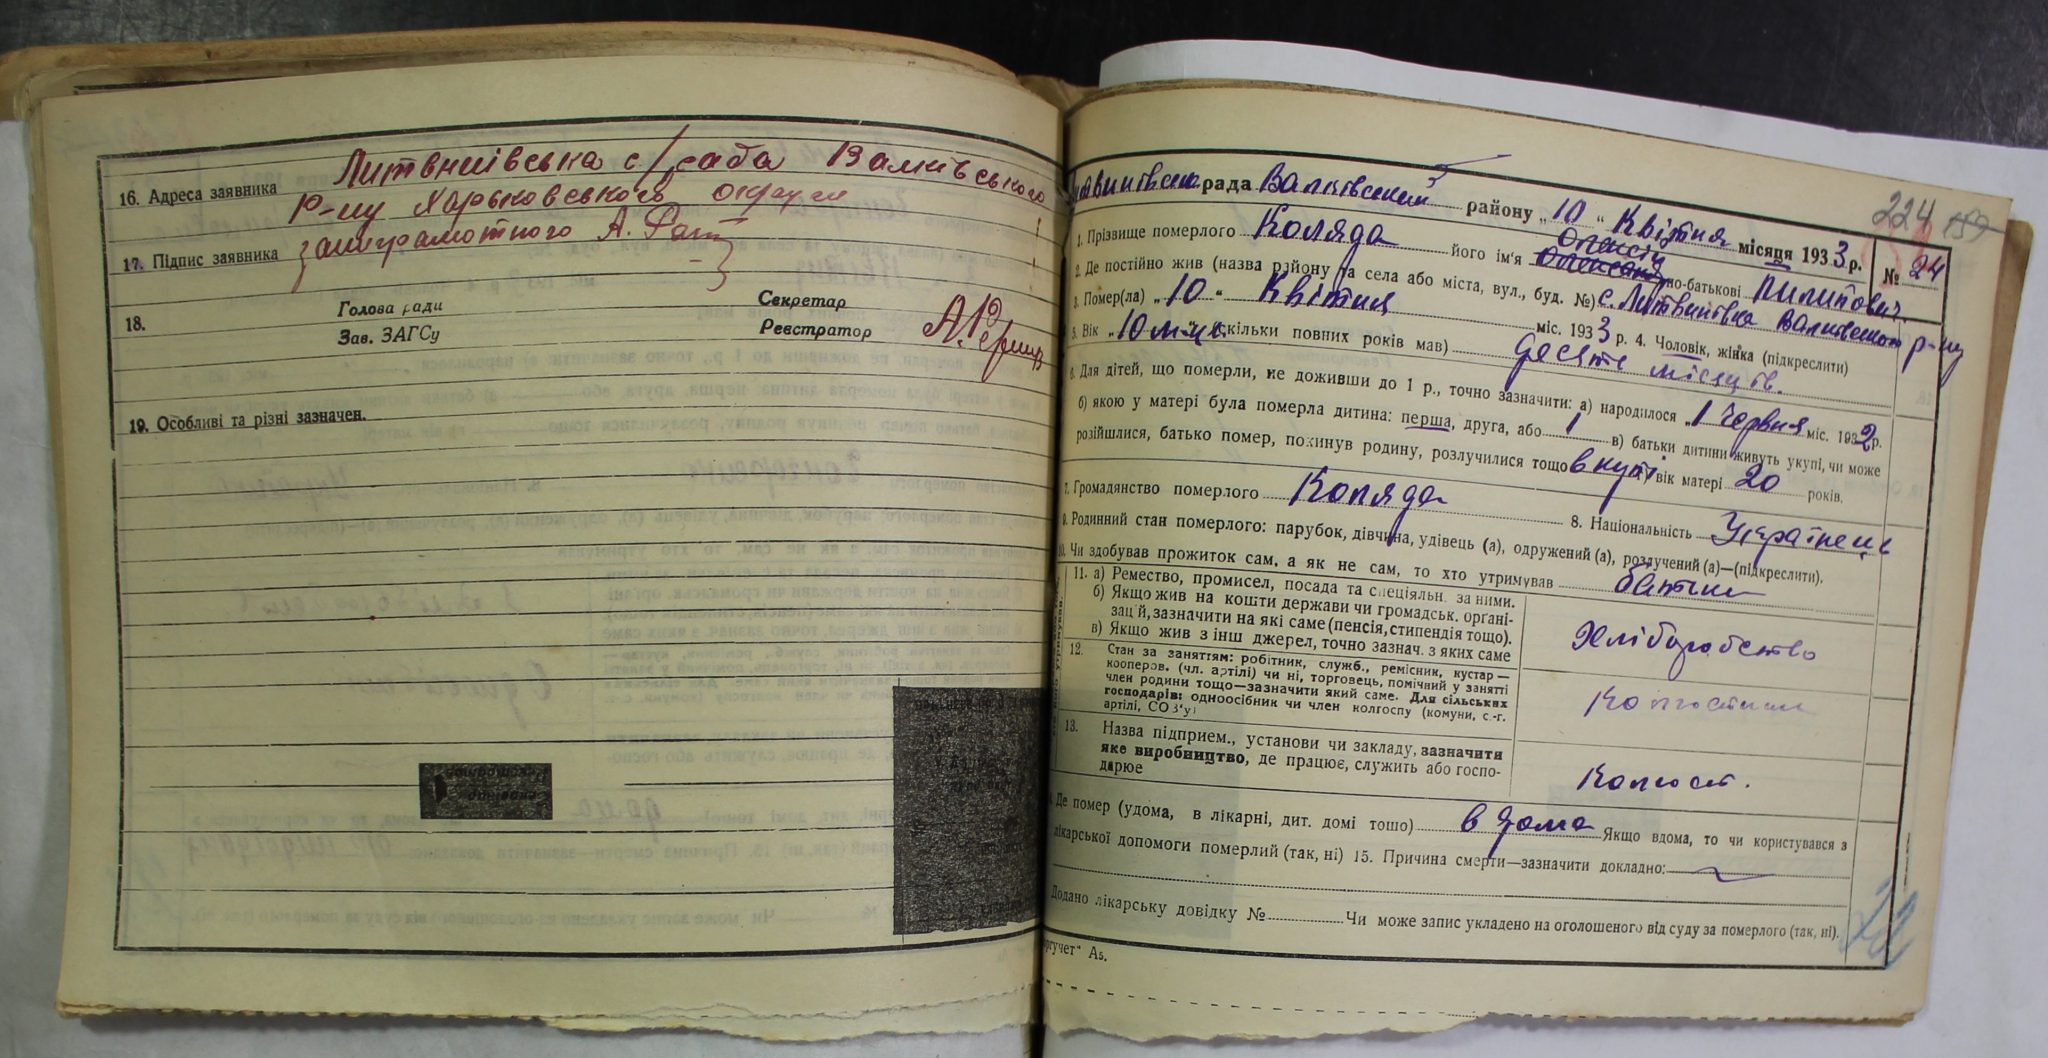 16. Адреса заявника Литвинівська с/рада Валківського
р-ну Харьковського округи
17. Підпис заявника за неграмотного А.
18. Голова ради Секретар
Зав. ЗАГСу Реєстратор
19. Особливі та різні зазначен.
рада Валківський району „10“ Квітня місяця 1933 р.
224
№ 24
1. Прізвище померлого Коляда його ім'я Олексій по-батькові Пилипович
2. Де постійно жив (назва району та села або міста, вул., буд. №) с. Литвинівка Валківського р-ну
3. Помер(ла) „10“ Квітня міс. 1933 р. 4. Чоловік, жінка (підкреслити)
5. Вік „10 міс. скільки повних років мав) десять місяців.
6. Для дітей, що померли, не доживши до 1 р., точно зазначити: а) народилося „1 Червня міс. 1932 р.
б) якою у матері була померла дитина: перша, друга, або 1 в) батьки дитини живуть укупі, чи може
розійшлися, батько помер, покинув родину, розлучилися тощо вкупі вік матері 20 років.
7. Громадянство померлого Коляда 8. Національність Українець
9. Родинний стан померлого: парубок, дівчина, удівець (а), одружений (а), розлучений (а)—(підкреслити).
10. Чи здобував прожиток сам, а як не сам, то хто утримував батьки
11. а) Ремество, промисел, посада та спеціяльн. за ними.
б) Якщо жив на кошти держави чи громадськ. органі-
зацій, зазначити на які саме (пенсія, стипендія тощо).
в) Якщо жив з інш джерел, точно зазнач. з яких саме
Хліборобство
12. Стан за заняттям: робітник, служб., ремісник, кустар—
кооперов. (чл. артілі) чи ні, торговець, помічний у занятті
член родини тощо—зазначити який саме. Для сільських
господарів: одноосібник чи член колгоспу (комуни, с.-г.
артілі, СОЗ'у)
Колгоспник
13. Назва підприєм., установи чи закладу, зазначити
яке виробництво, де працює, служить або госпо-
дарює
Колгосп.
Де помер (удома, в лікарні, дит. домі тошо) в дома Якщо вдома, то чи користувався з
лікарської допомоги померлий (так, ні) 15. Причина смерти—зазначити докладно:
Додано лікарську довідку № Чи може запис укладено на оголошеного від суду за померлого (так, ні).
ргучет“ А5.